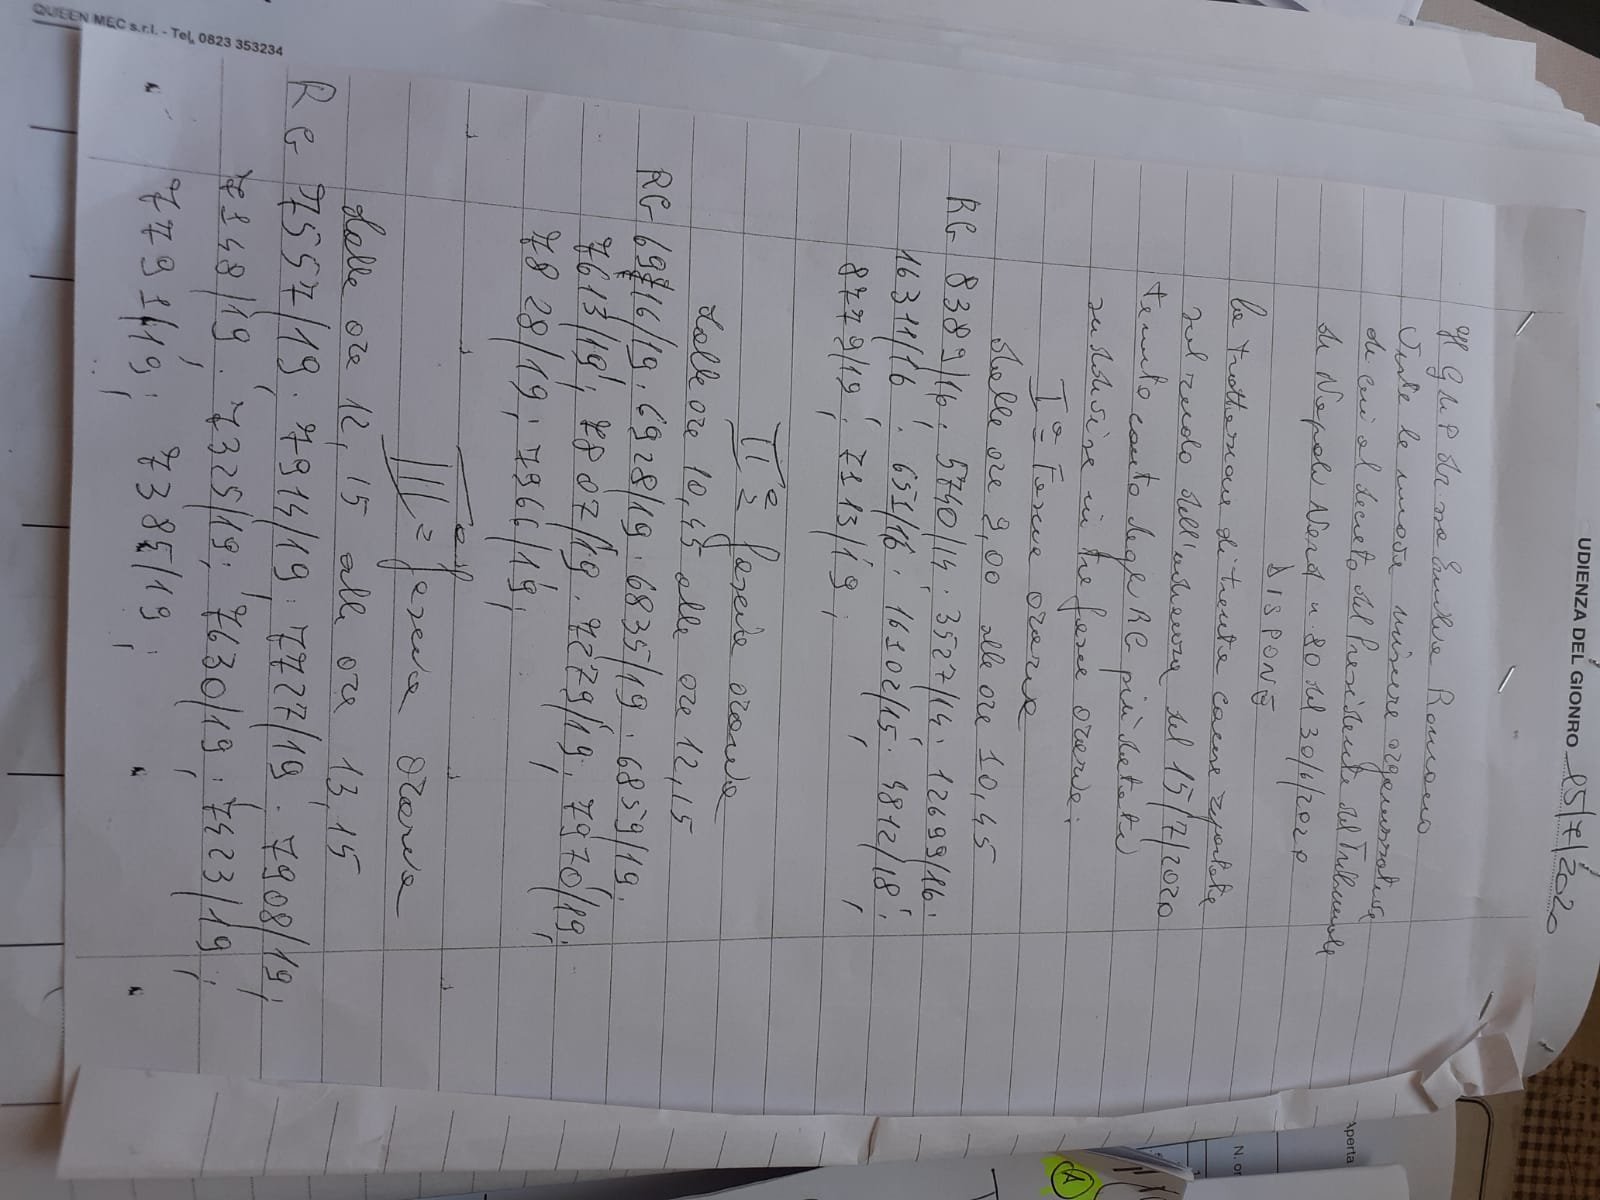 UDIENZA DEL GIONRO 15/7/2020
Il G.U.P. dr.ssa Romano
Viste le nuove misure organizzative
di cui al decreto del Presidente del Tribunale
di Napoli Nord n. 80 del 30/6/2020
DISPONE
la trattazione di trenta cause riportate
sul ruolo dell'udienza del 15/7/2020
tenuto conto degli RG più datati
suddivise in tre fasce orarie:
I° Fascia oraria
dalle ore 9,00 alle ore 10,45
RG 8389/16; 5740/14; 3527/14; 12699/16;
16311/16; 651/16; 16102/15; 9812/18;
8779/19; 7113/19;
II° fascia oraria
dalle ore 10,45 alle ore 12,15
RG /19; 6928/19; 6835/19; 6859/19;
7613/19; 7807/19; 7279/19; 7970/19;
7828/19; 7966/19;
III° fascia oraria
dalle ore 12,15 alle ore 13,15
RG 7557/19; 7914/19; 7727/19; 7908/19;
7848/19; 7325/19; 7630/19; 7423/19;
7791/19; 7385/19;
QUEEN MEC s.r.l. - Tel. 0823 353234
Aperta
A